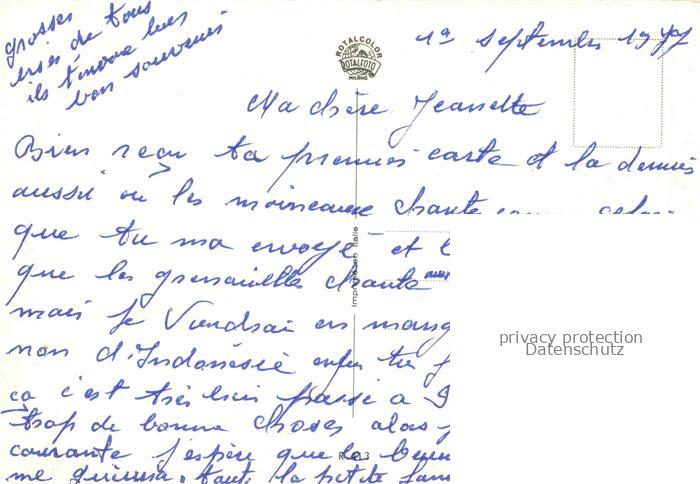 grosses
bises de tous
ils t'envoie leurs
bon souvenir
ROTALCOLOR
ROTALFOTO
MILANO
1a septembre 1977
Ma chère Jeannette
Bien reçu ta premier carte et la dernier
aussi où les moineaux chante comme celui
que tu ma envoyé et l
que les grenouilles chante
mais je Voudrai en mang
non d'Indonésie enfin tu
ça c'est très bien passé a
trop de bonne choses alors
courante j'espère que le
me tout la petite
Imprimé en Italie
R 3
privacy protection
Datenschutz